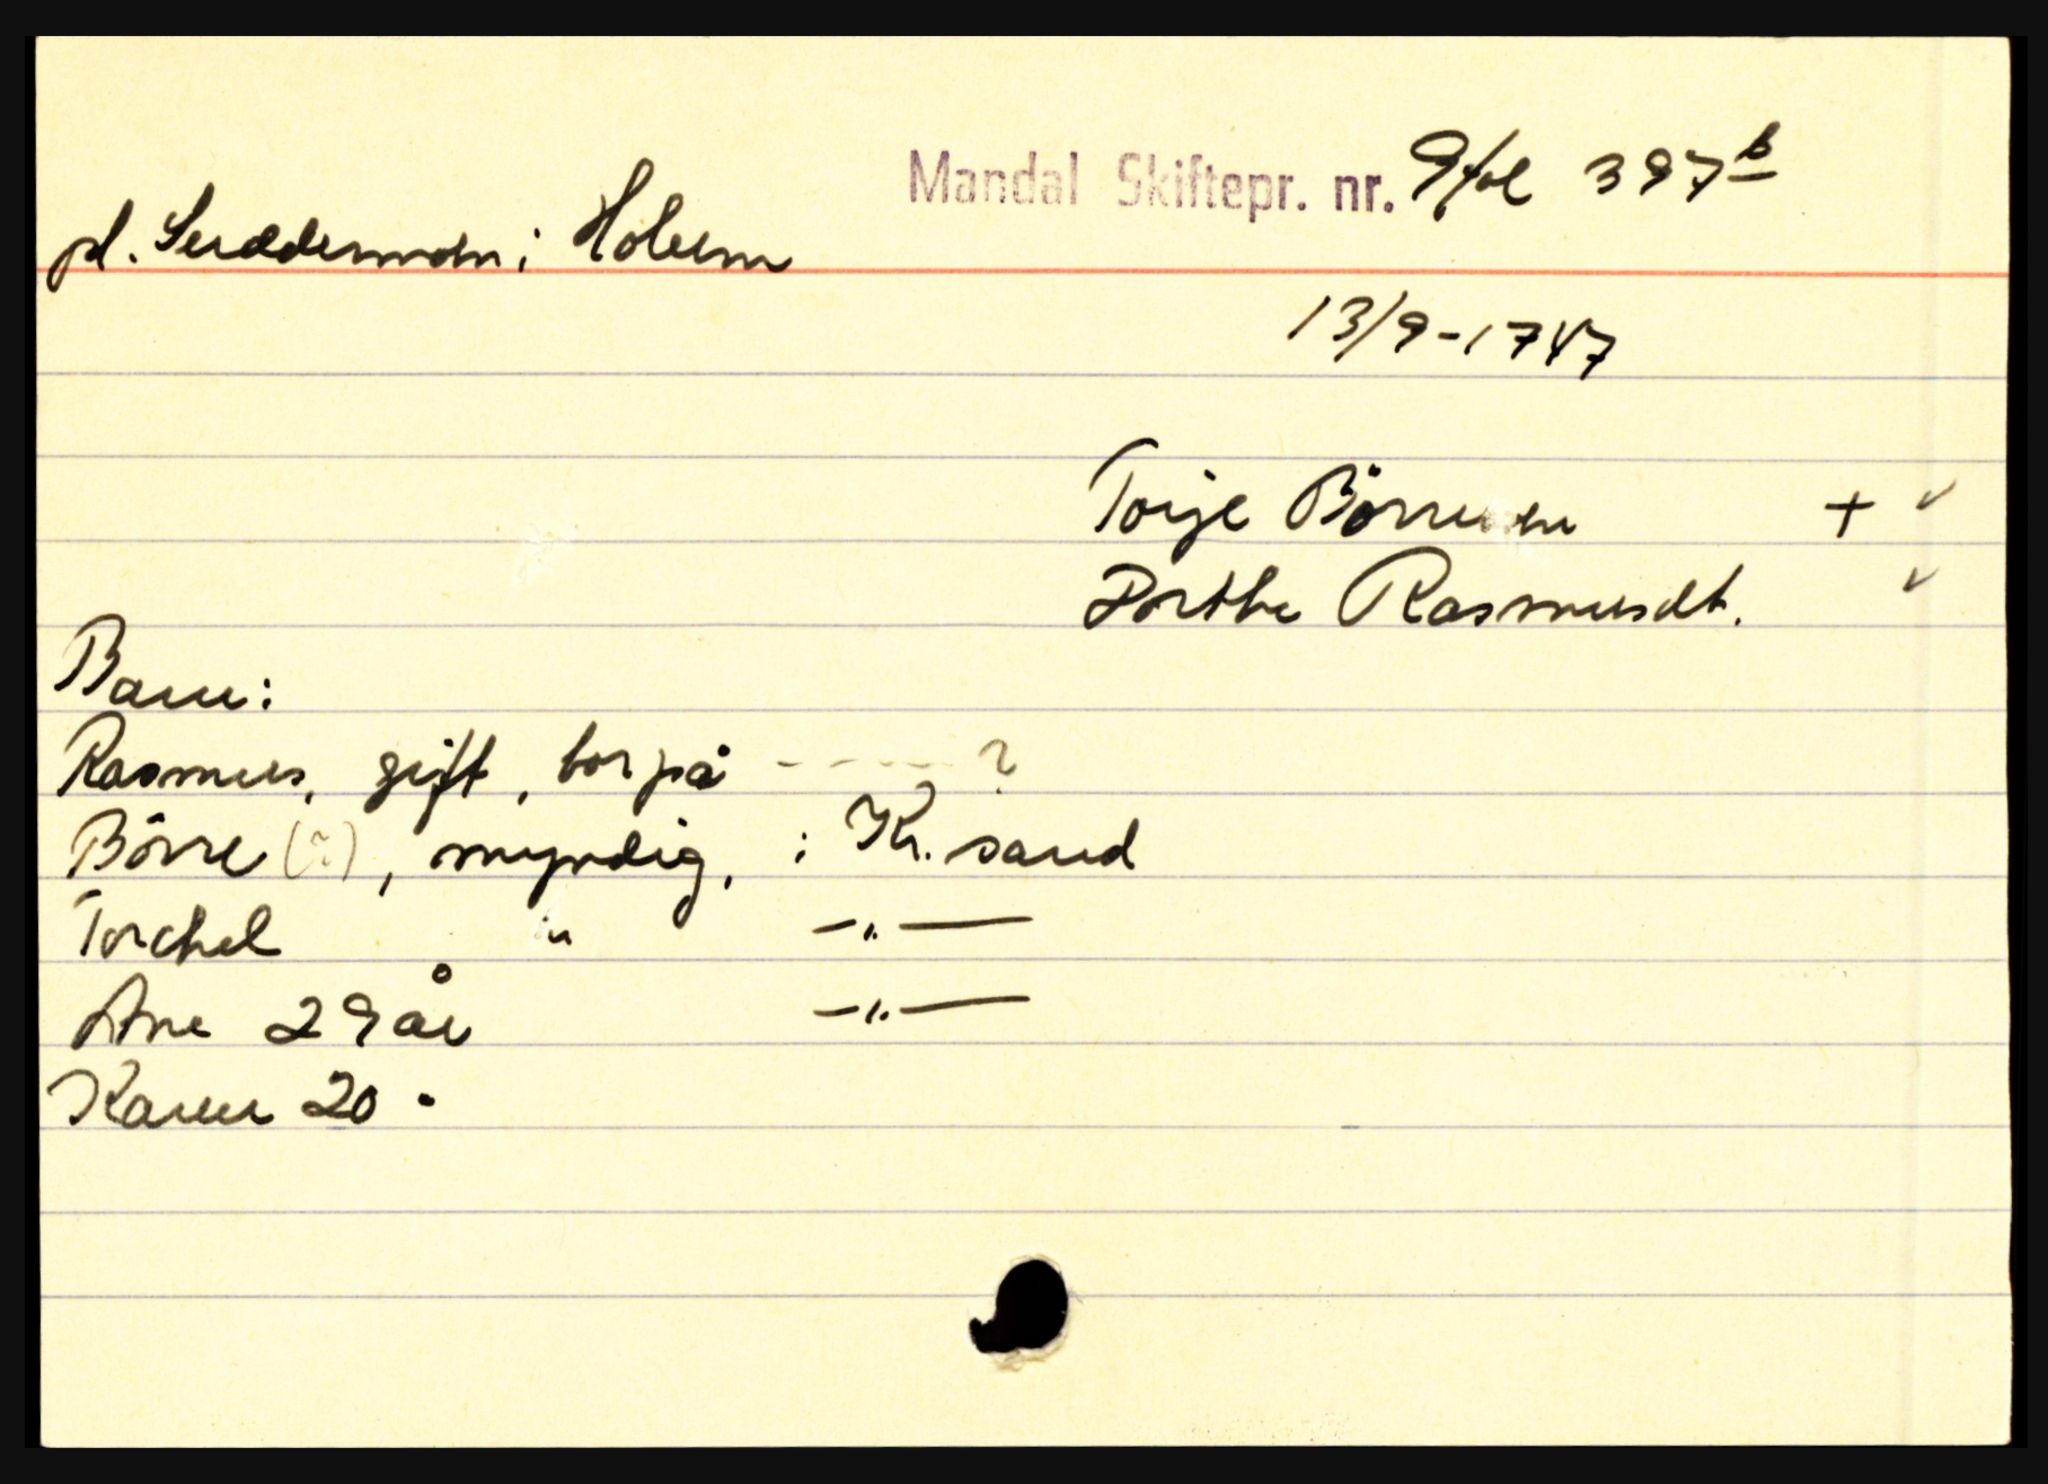 Mandal Skiftepr. nr. 9 fol 397 b
pl. i Holum
13/9-1747
Torje Börresen + ✓
Dorthe Rasmusdt. ✓
Barn:
Rasmus, gift, bor på - - - - - ?
Börre (?), myndig, i Kr. sand
Torchel " —"—
Ane 29 år —"—
Karen 20 "